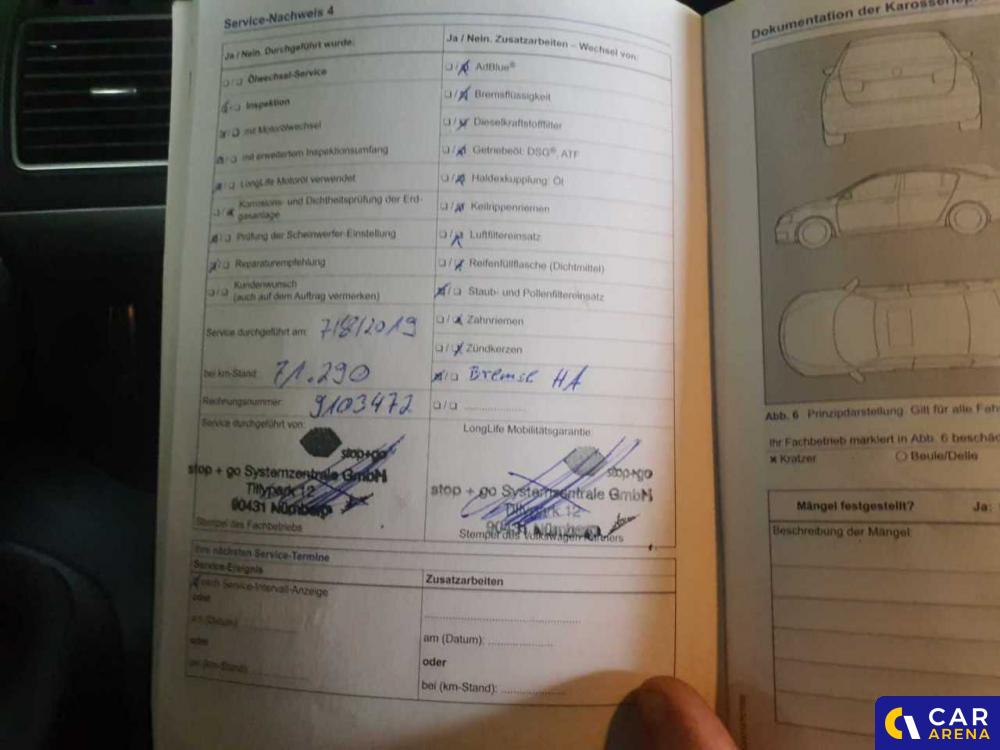 Service-Nachweis 4
Ja / Nein. Durchgeführt wurde:
Ölwechsel-Service
Inspektion
mit Motorölwechsel
mit erweitertem Inspektionsumfang
LongLife Motoröl verwendet
Korrosions- und Dichtheitsprüfung der Erd-
gasanlage
Prüfung der Scheinwerfer-Einstellung
Reparaturempfehlung
Kundenwunsch
(auch auf dem Auftrag vermerken)
Service durchgeführt am: 7/8/2019
bei km-Stand: 71.290
Rechnungsnummer: 9103472
Service durchgeführt von:
stop+go
stop + go Systemzentrale GmbH
Tillypark 12
90431 Nürnberg
Stempel des Fachbetriebs
Ja / Nein. Zusatzarbeiten – Wechsel von:
AdBlue®
Bremsflüssigkeit
Dieselkraftstofffilter
Getriebeöl: DSG®, ATF
Haldexkupplung: Öl
Keilrippenriemen
Luftfiltereinsatz
Reifenfüllflasche (Dichtmittel)
Staub- und Pollenfiltereinsatz
Zahnriemen
Zündkerzen
Bremse HA
LongLife Mobilitätsgarantie:
stop+go
stop + go Systemzentrale GmbH
Tillypark 12
90431 Nürnberg
Stempel des Volkswagen Partners
Ihre nächsten Service-Termine
Service-Ereignis
nach Service-Intervall-Anzeige
oder
am (Datum):
oder
bei (km-Stand):
Zusatzarbeiten
am (Datum):
oder
bei (km-Stand):
Dokumentation der
Abb. 6 Prinzipdarstellung. Gilt für alle
Ihr Fachbetrieb markiert in Abb. 6
x Kratzer
O Beule/Delle
Mängel festgestellt? Ja:
Beschreibung der Mängel:
CAR
ARENA